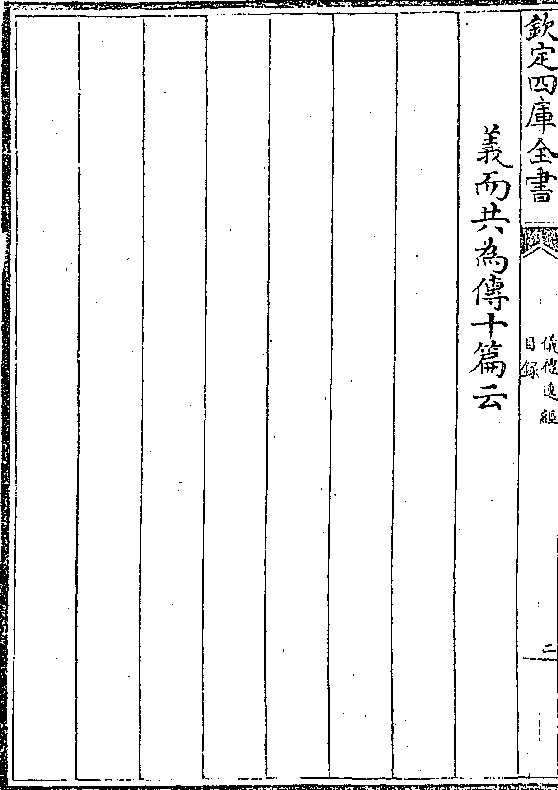 欽定四庫全書
儀禮逸經
目錄
二
義而共為傳十篇云